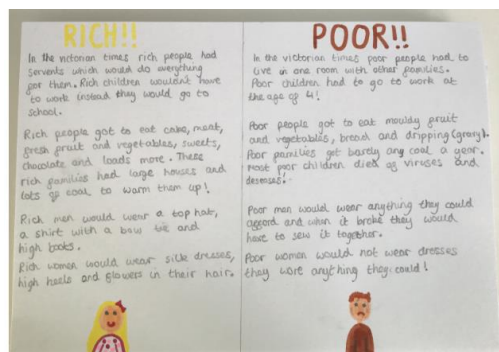 RICH!!
In the victorian times rich people had
servents which would do everything
for them. Rich children wouldn't have
to work instead they would go to
school.
Rich people got to eat cake, meat,
fresh fruit and vegetables, sweets,
chocolate and loads more. These
rich families had large houses and
lots of coal to warm them up!
Rich men would wear a top hat,
a shirt with a bow tie and
high boots.
Rich women would wear silk dresses,
high heels and flowers in their hair.
POOR!!
In the victorian times poor people had to
live in one room with other families.
Poor children had to go to work at
the age of 4!
Poor people got to eat mouldy fruit
and vegetables, bread and dripping (gravy).
Poor families get barely any coal a year.
Most poor children died of viruses and
deseses.
Poor men would wear anything they could
afford and when it broke they would
have to sew it together.
Poor women would not wear dresses
they wore anything they could!